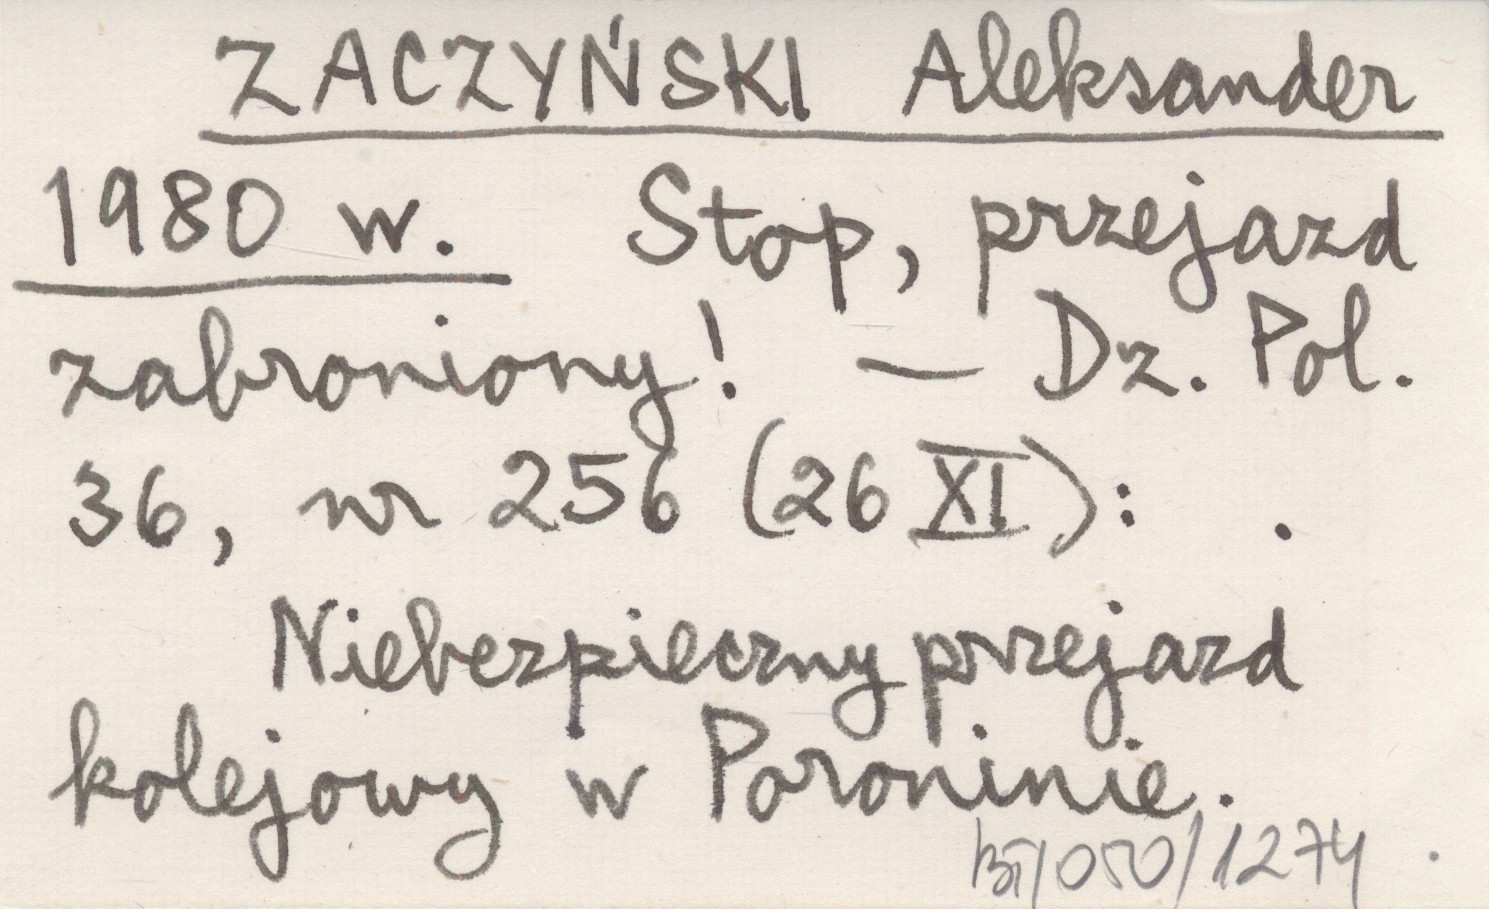 ZACZYŃSKI Aleksander
1980 w. Stop, przejazd
zabroniony! — Dz. Pol.
36, nr 256 (26 XI):
Niebezpieczny przejazd
kolejowy w Poroninie.
BT/050/1274